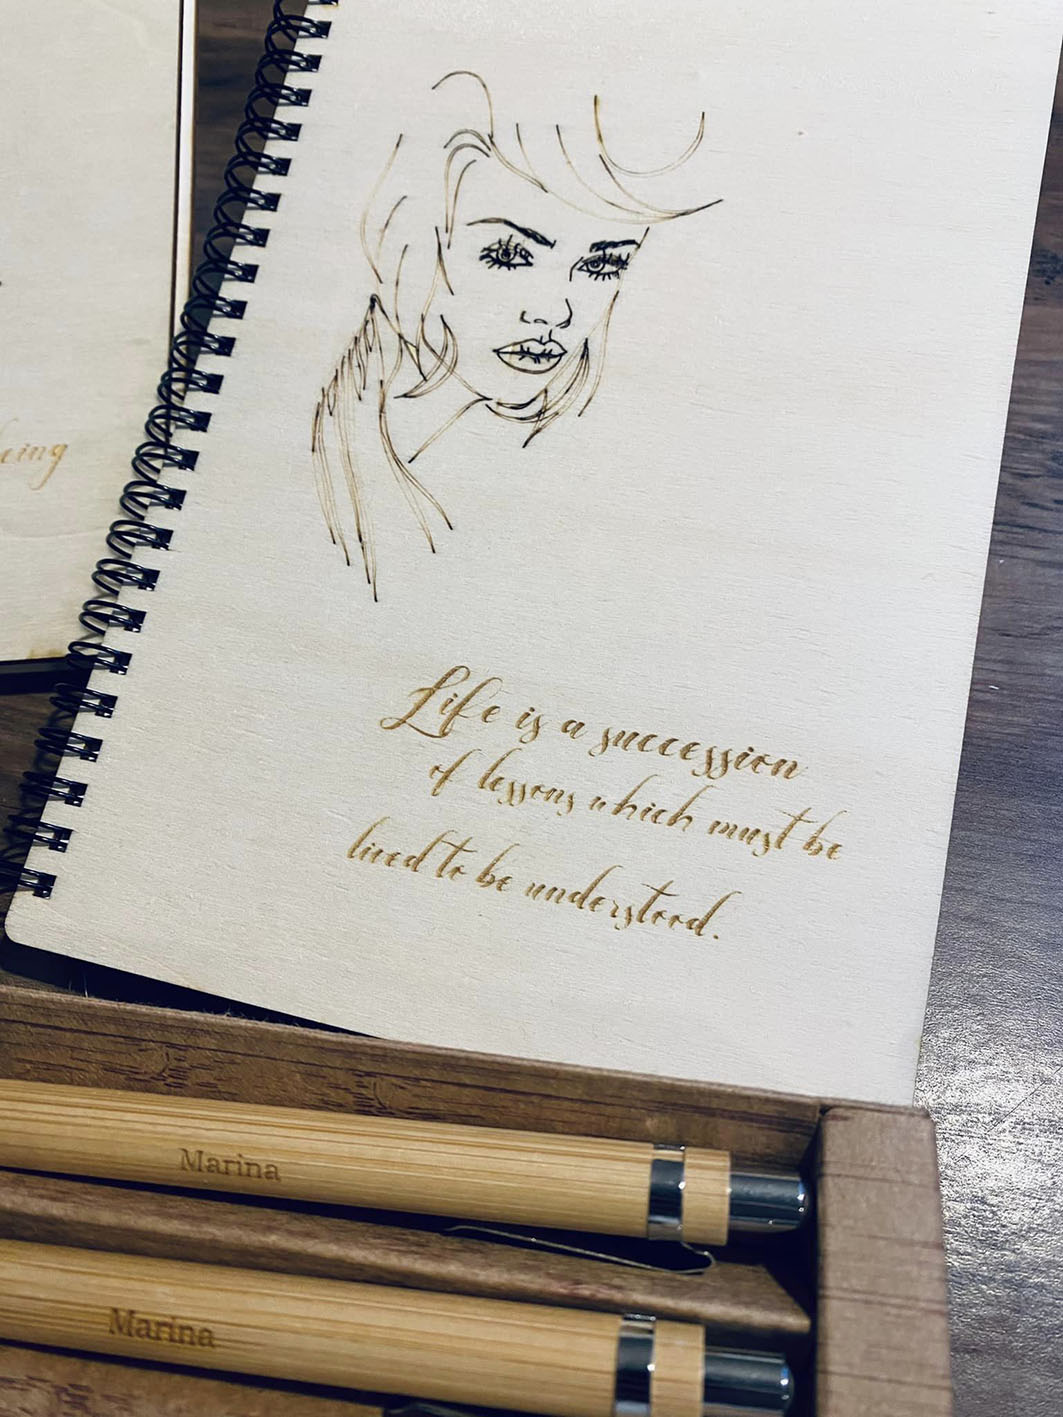 Life is a succession
of lessons which must be
lived to be understood.
Marina
Marina